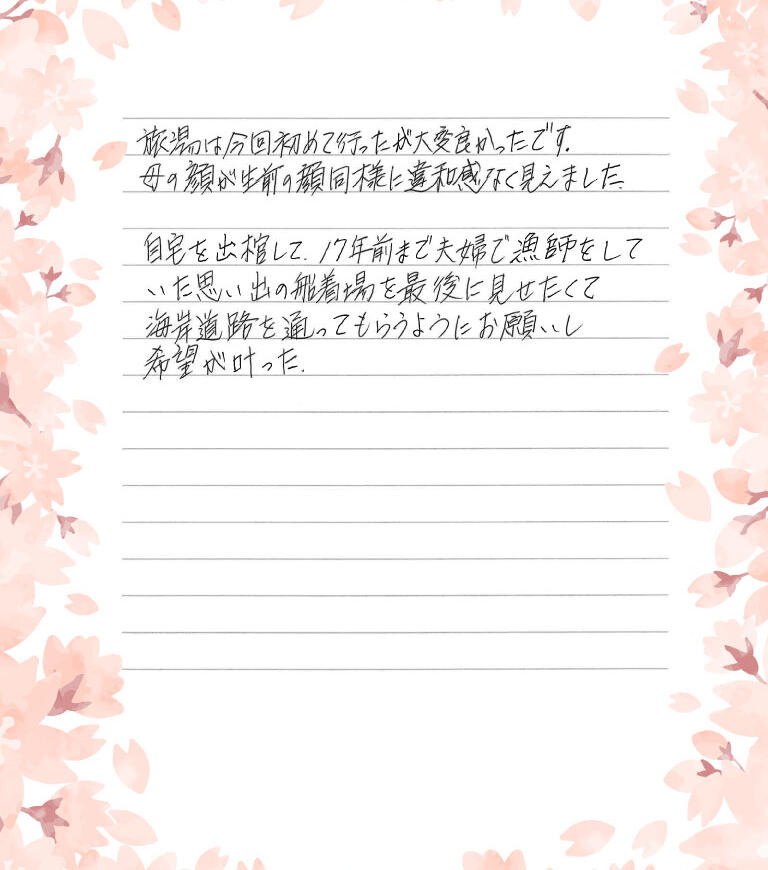 旅湯は今回初めて行ったが大変良かったです.
母の顔が生前の顔同様に違和感なく見えました.
自宅を出棺して、17年前まで夫婦で漁師をして
いた思い出の船着場を最後に見せたくて
海岸道路を通ってもらうようにお願いし
希望が叶った.